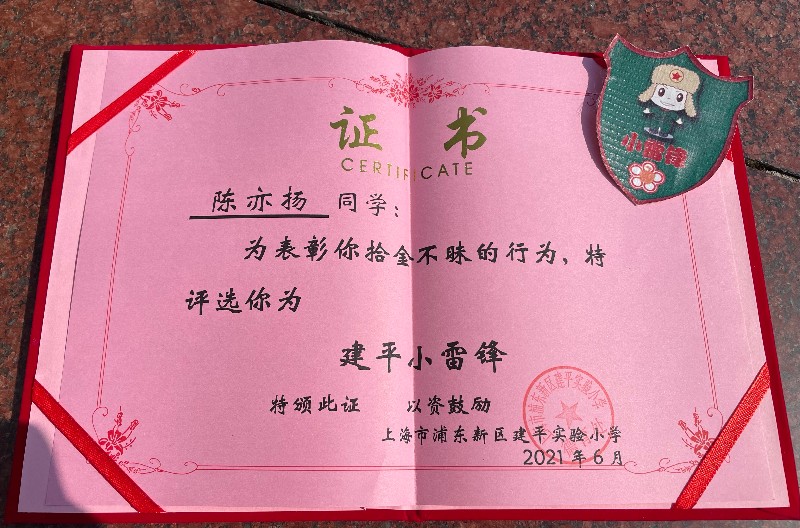 证 书
CERTIFICATE
小雷锋
陈亦扬 同学：
为表彰你拾金不昧的行为，特
评选你为
建平小雷锋
特颁此证 以资鼓励
上海市浦东新区建平实验小学
2021年6月